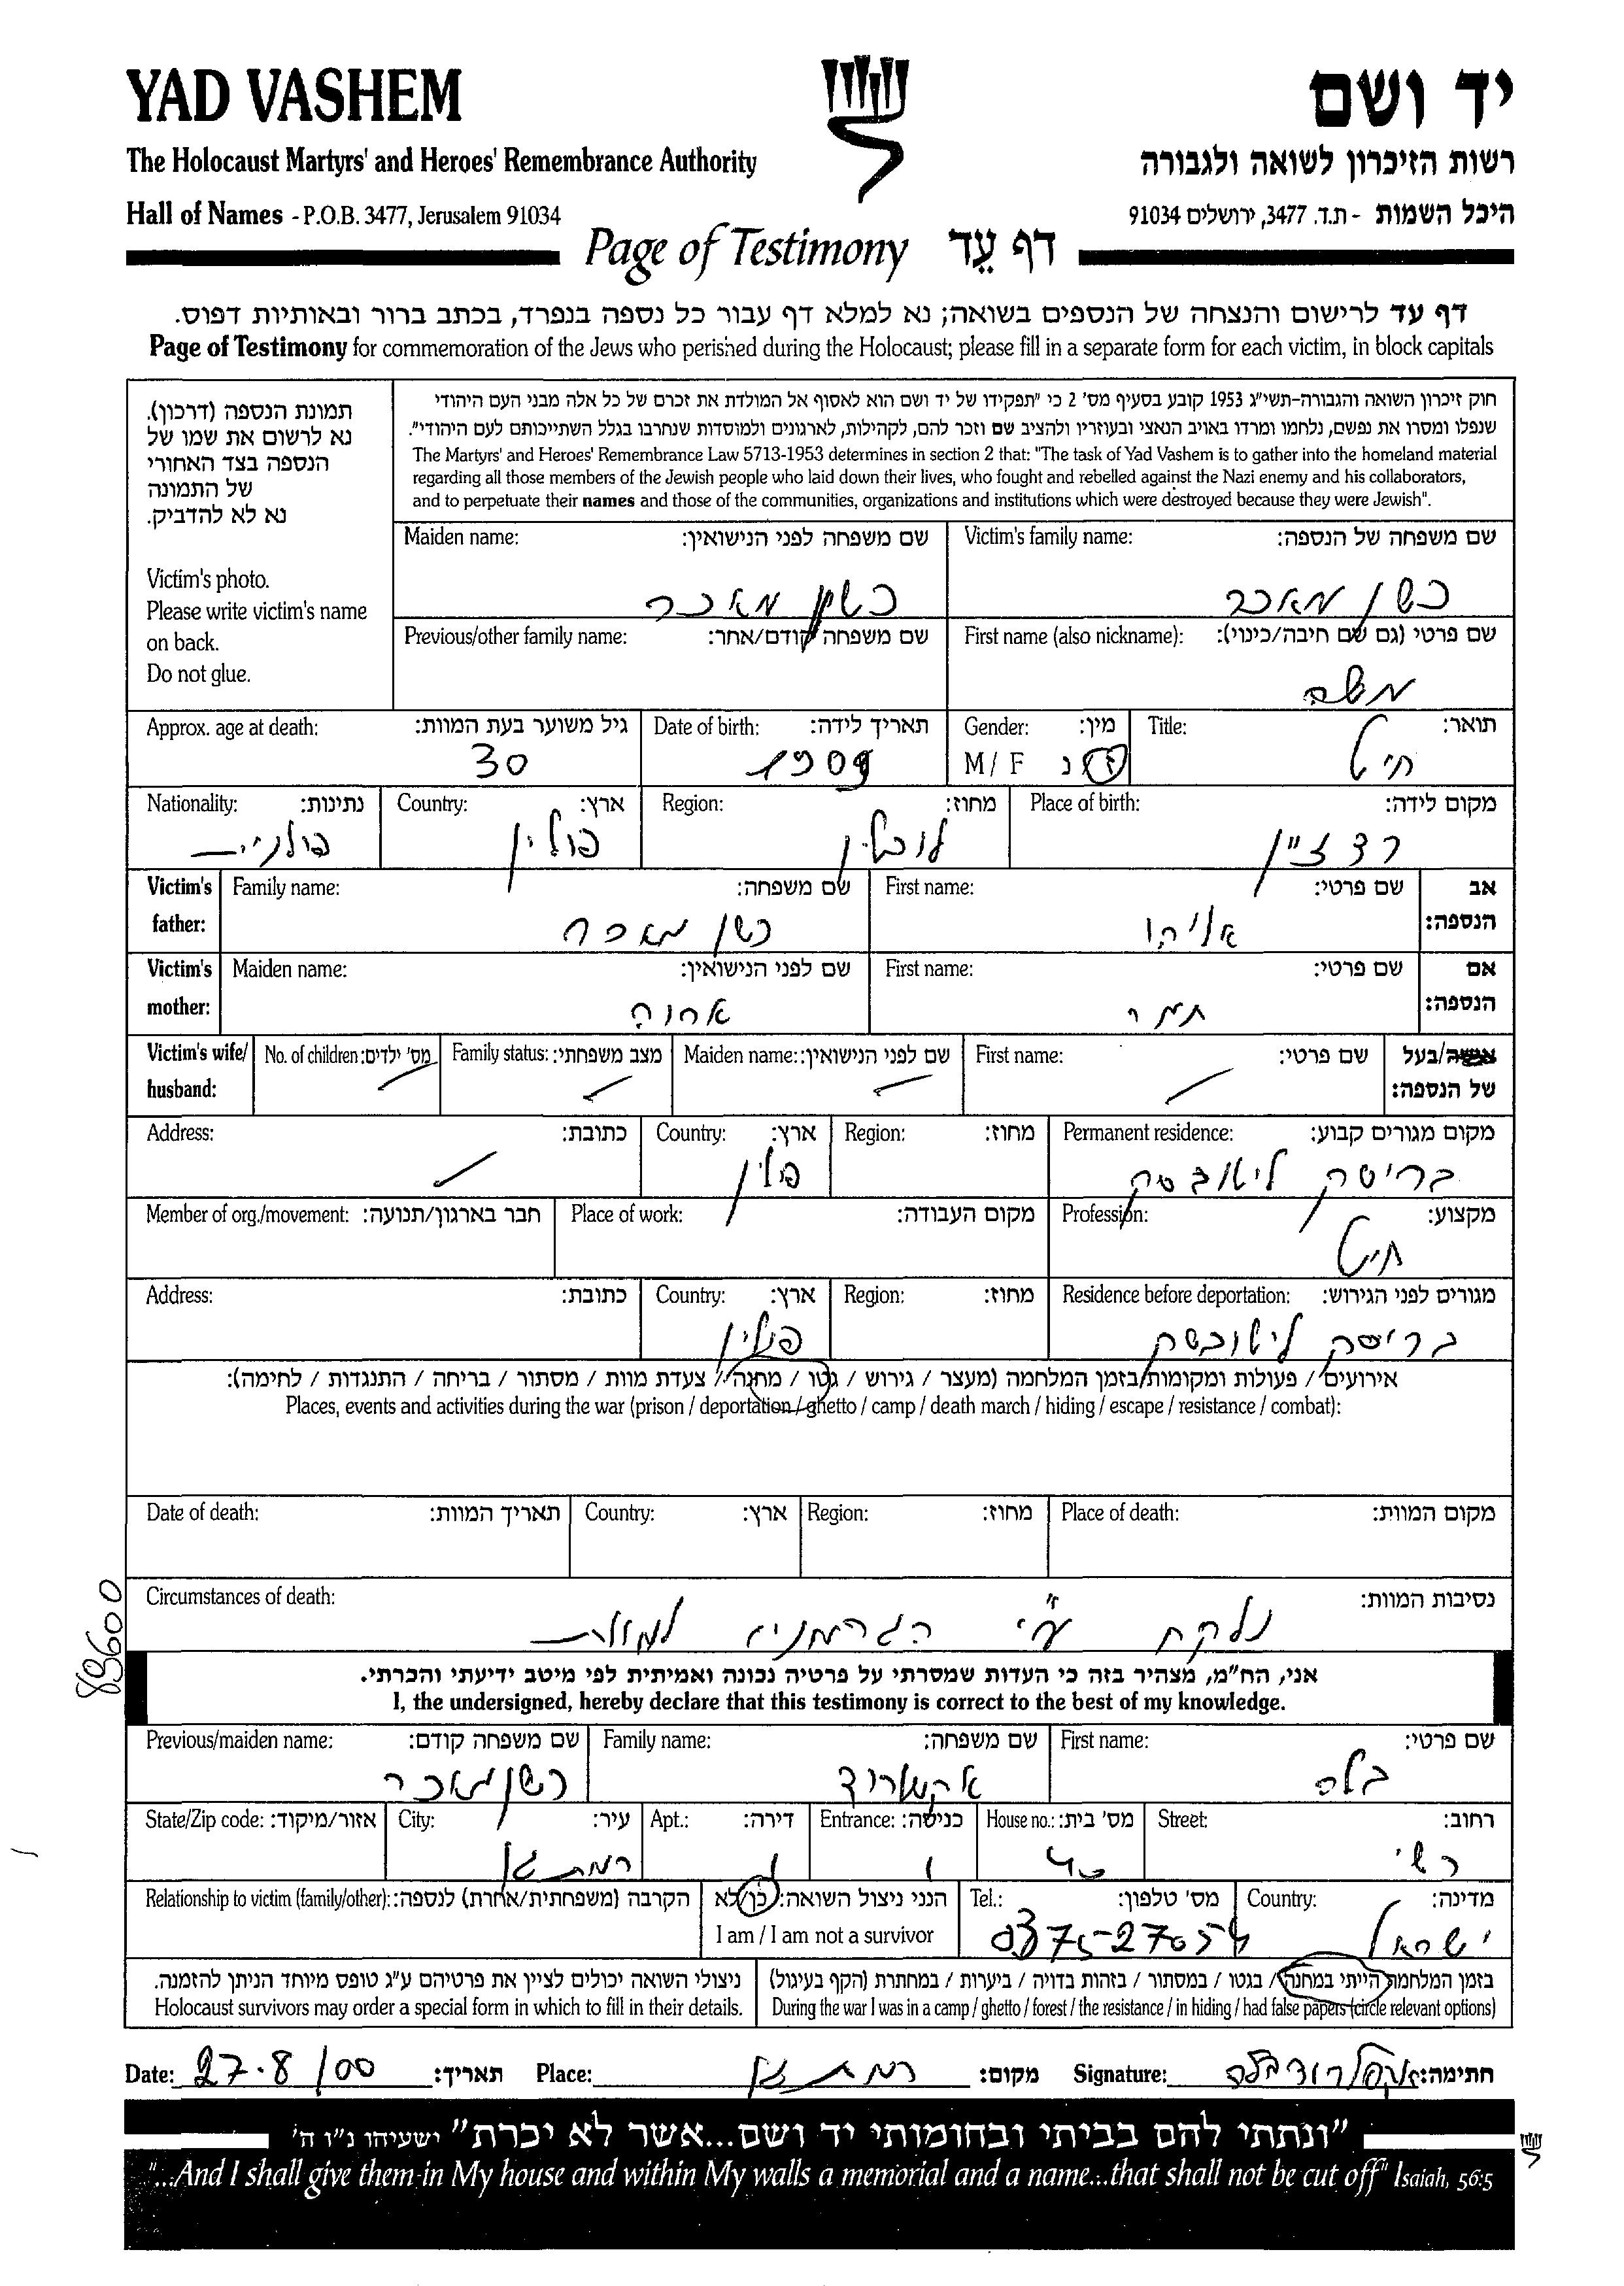 YAD VASHEM
יד ושם
The Holocaust Martyrs' and Heroes' Remembrance Authority
רשות הזיכרון לשואה ולגבורה
Hall of Names - P.O.B. 3477, Jerusalem 91034
היכל השמות - ת.ד. 3477, ירושלים 91034
Page of Testimony דף עֵד
דף עד לרישום והנצחה של הנספים בשואה; נא למלא דף עבור כל נספה בנפרד, בכתב ברור ובאותיות דפוס.
Page of Testimony for commemoration of the Jews who perished during the Holocaust; please fill in a separate form for each victim, in block capitals
תמונת הנספה (דרכון).
נא לרשום את שמו של
הנספה בצד האחורי
של התמונה
נא לא להדביק.
Victim's photo.
Please write victim's name
on back.
Do not glue.
חוק זיכרון השואה והגבורה-תשי"ג 1953 קובע בסעיף מס' 2 כי "תפקידו של יד ושם הוא לאסוף אל המולדת את זכרם של כל אלה מבני העם היהודי
שנפלו ומסרו את נפשם, נלחמו ומרדו באויב הנאצי ובעוזריו ולהציב שם וזכר להם, לקהילות, לארגונים ולמוסדות שנחרבו בגלל השתייכותם לעם היהודי".
The Martyrs' and Heroes' Remembrance Law 5713-1953 determines in section 2 that: "The task of Yad Vashem is to gather into the homeland material
regarding all those members of the Jewish people who laid down their lives, who fought and rebelled against the Nazi enemy and his collaborators,
and to perpetuate their names and those of the communities, organizations and institutions which were destroyed because they were Jewish".
Victim's family name: שם משפחה של הנספה:
כשן מאכר
Maiden name: שם משפחה לפני הנישואין:
כשן מאכר
First name (also nickname): שם פרטי (גם שם חיבה/כינוי):
משה
Previous/other family name: שם משפחה קודם/אחר:
Title: תואר:
חייט
Gender: מין:
M / F ז/נ
Date of birth: תאריך לידה:
1909
Approx. age at death: גיל משוער בעת המוות:
30
Place of birth: מקום לידה:
רדזין
Region: מחוז:
לובלין
Country: ארץ:
פולין
Nationality: נתינות:
פולנית
Victim's father: אב הנספה:
First name: שם פרטי:
אליהו
Family name: שם משפחה:
כשן מאכר
Victim's mother: אם הנספה:
First name: שם פרטי:
תמר
Maiden name: שם לפני הנישואין:
Victim's wife/ husband: אשה/בעל של הנספה:
First name: שם פרטי:
Maiden name: שם לפני הנישואין:
Family status: מצב משפחתי:
No. of children: מס' ילדים:
Permanent residence: מקום מגורים קבוע:
בריסק ליטובסק
Region: מחוז:
Country: ארץ:
פולין
Address: כתובת:
Profession: מקצוע:
חייט
Place of work: מקום העבודה:
Member of org./movement: חבר בארגון/תנועה:
Residence before deportation: מגורים לפני הגירוש:
בריסק ליטובסק
Region: מחוז:
Country: ארץ:
פולין
Address: כתובת:
אירועים / פעולות ומקומות בזמן המלחמה (מעצר / גירוש / גטו / מחנה / צעדת מוות / מסתור / בריחה / התנגדות / לחימה):
Places, events and activities during the war (prison / deportation / ghetto / camp / death march / hiding / escape / resistance / combat):
Place of death: מקום המוות:
Region: מחוז:
Country: ארץ:
Date of death: תאריך המוות:
Circumstances of death: נסיבות המוות:
נלקח ע"י הגרמנים למוות
89600
אני, הח"מ, מצהיר בזה כי העדות שמסרתי על פרטיה נכונה ואמיתית לפי מיטב ידיעתי והכרתי.
I, the undersigned, hereby declare that this testimony is correct to the best of my knowledge.
First name: שם פרטי:
בלה
Family name: שם משפחה:
אקסלרוד
Previous/maiden name: שם משפחה קודם:
כשן מאכר
Street: רחוב:
רש"י
House no.: מס' בית:
40
Entrance: כניסה:
1
Apt.: דירה:
1
City: עיר:
רמת גן
State/Zip code: אזור/מיקוד:
Country: מדינה:
ישראל
Tel.: מס' טלפון:
I am / I am not a survivor הנני ניצול השואה: כן/לא
Relationship to victim (family/other): הקרבה (משפחתית/אחרת) לנספה:
בזמן המלחמה הייתי במחנה / בגטו / במסתור / בזהות בדויה / ביערות / במחתרת (הקף בעיגול)
During the war I was in a camp / ghetto / forest / the resistance / in hiding / had false papers (circle relevant options)
ניצולי השואה יכולים לציין את פרטיהם ע"ג טופס מיוחד הניתן להזמנה.
Holocaust survivors may order a special form in which to fill in their details.
Date: 27.8/00 תאריך:
Place: רמת גן מקום:
Signature: אקסלרוד בלה חתימה:
"ונתתי להם בביתי ובחומותי יד ושם...אשר לא יכרת" ישעיהו נ"ו ה'
"...And I shall give them in My house and within My walls a memorial and a name...that shall not be cut off" Isaiah, 56:5